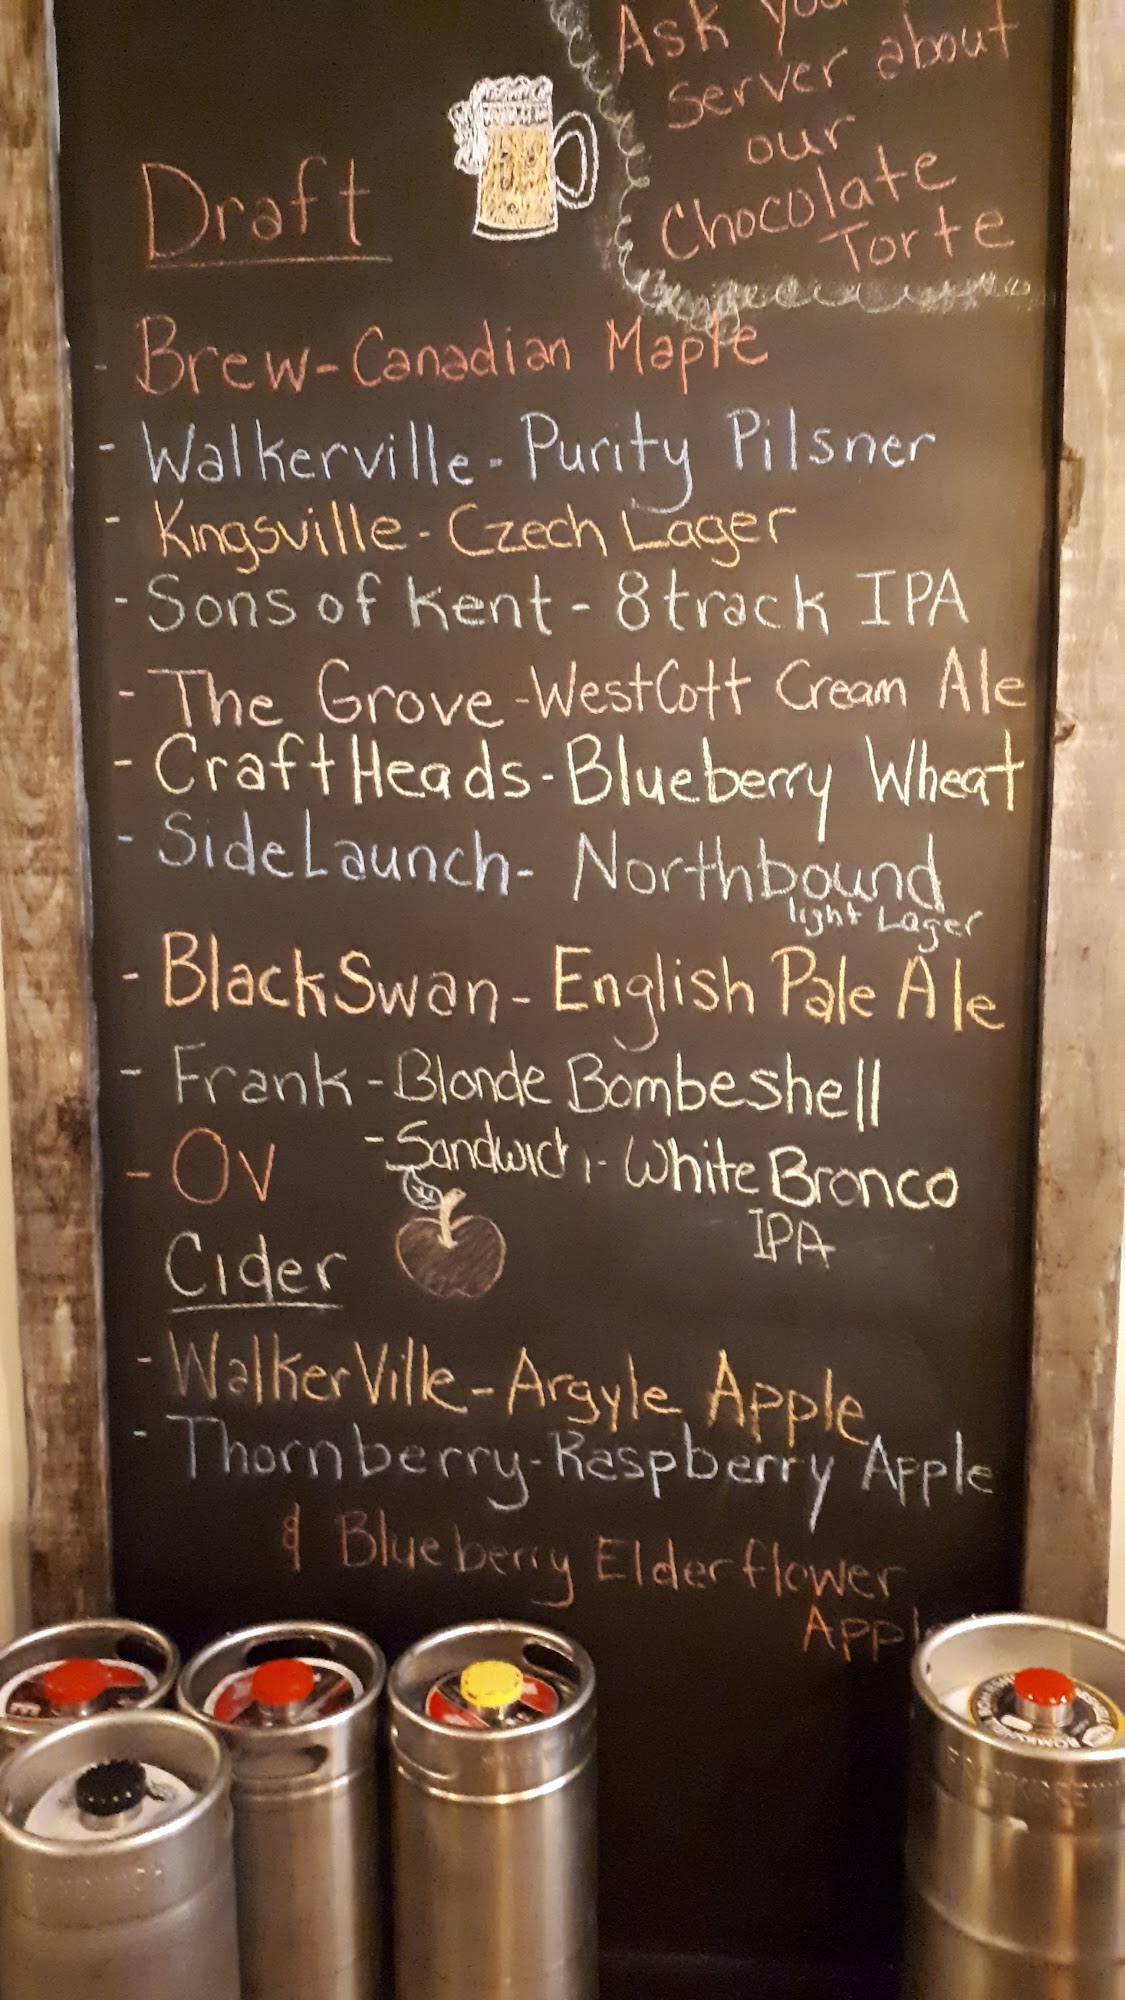 Ask you
server about
our
Chocolate
Torte
Draft
- Brew-Canadian Maple
- Walkerville - Purity Pilsner
- Kingsville - Czech Lager
- Sons of Kent - 8track IPA
- The Grove - WestCott Cream Ale
- CraftHeads - Blueberry Wheat
- SideLaunch - Northbound
light Lager
- BlackSwan - English Pale Ale
- Frank - Blonde Bombeshell
- OV - Sandwich - White Bronco
IPA
Cider
- WalkerVille - Argyle Apple
- Thornberry - Raspberry Apple
& Blueberry Elderflower
Apple